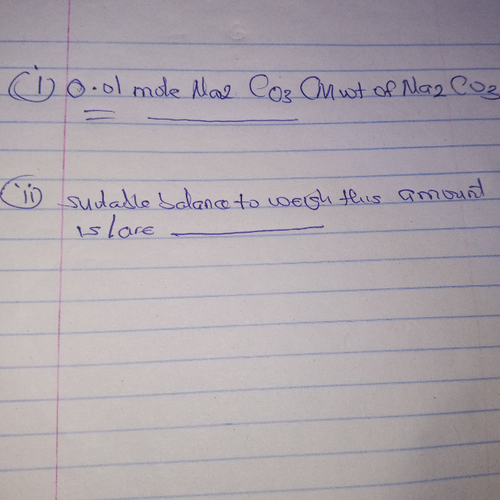 (i) 0.01 mole Na2 CO3 (Mwt of Na2 CO3
(ii) suitable balance to weigh this amount
is/are